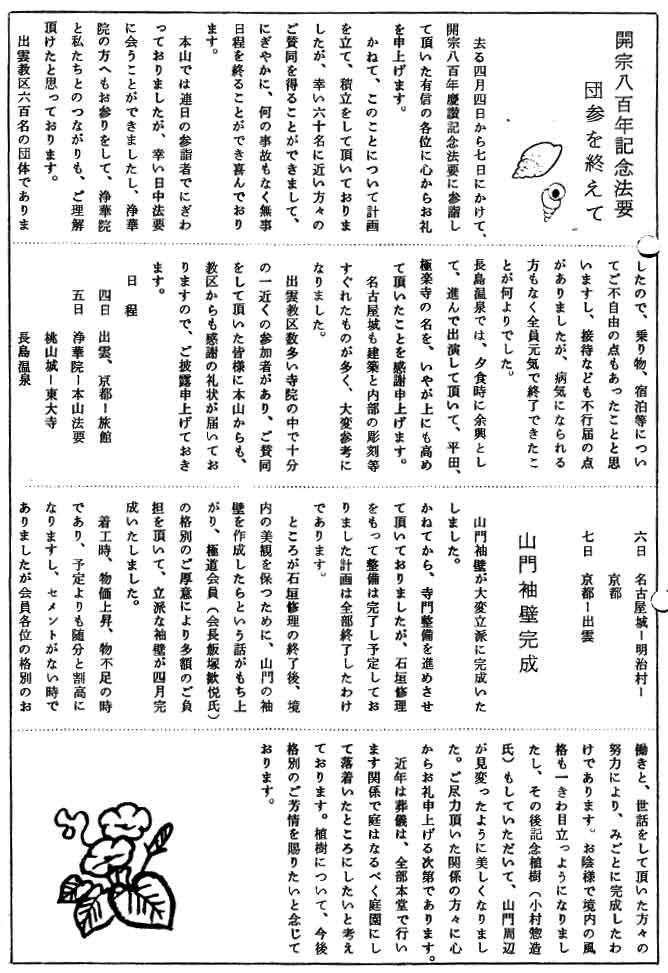 開宗八百年記念法要
団参を終えて
去る四月四日から七日にかけて、
開宗八百年慶讃記念法要に参詣し
て頂いた有信の各位に心からお礼
を申上げます。
かねて、このことについて計画
を立て、積立をして頂いておりま
したが、幸い六十名に近い方々の
ご賛同を得ることができまして、
にぎやかに、何の事故もなく無事
日程を終ることができ喜んでおり
ます。
本山では連日の参詣者でにぎわ
っておりましたが、幸い日中法要
に会うことができましたし、浄華
院の方へもお参りをして、浄華院
と私たちとのつながりも、ご理解
頂けたと思っております。
出雲教区六百名の団体でありま
したので、乗り物、宿泊等につい
てご不自由の点もあったことと思
いますし、接待なども不行届の点
がありましたが、病気になられる
方もなく全員元気で終了できたこ
とが何よりでした。
長島温泉では、夕食時に余興とし
て、進んで出演して頂いて、平田、
極楽寺の名を、いやが上にも高め
て頂いたことを感謝申上げます。
名古屋城も建築と内部の彫刻等
すぐれたものが多く、大変参考に
なりました。
出雲教区数多い寺院の中で十分
の一近くの参加者があり、ご賛同
をして頂いた皆様に本山からも、
教区からも感謝の礼状が届いてお
りますので、ご披露申上げておき
ます。
日程
四日 出雲、京都ー旅館
五日 浄華院ー本山法要
桃山城ー東大寺
長島温泉
六日 名古屋城ー明治村ー
京都
七日 京都ー出雲
山門袖壁完成
山門袖壁が大変立派に完成いた
しました。
かねてから、寺門整備を進めさせ
て頂いておりましたが、石垣修理
をもって整備は完了し予定してお
りました計画は全部終了したわけ
であります。
ところが石垣修理の終了後、境
内の美観を保つために、山門の袖
壁を作成したらという話がもち上
がり、極道会員（会長飯塚歓悦氏）
の格別のご厚意により多額のご負
担を頂いて、立派な袖壁が四月完
成いたしました。
着工時、物価上昇、物不足の時
であり、予定よりも随分と割高に
なりますし、セメントがない時で
ありましたが会員各位の格別のお
働きと、世話をして頂いた方々の
努力により、みごとに完成したわ
けであります。お陰様で境内の風
格も一きわ目立つようになりまし
たし、その後記念植樹（小村惣造
氏）もしていただいて、山門周辺
が見変ったように美しくなりまし
た。ご尽力頂いた関係の方々に心
からお礼申上げる次第であります。
近年は葬儀は、全部本堂で行い
ます関係で庭はなるべく庭園にし
て落着いたところにしたいと考え
ております。植樹について、今後
格別のご芳情を賜りたいと念じて
おります。